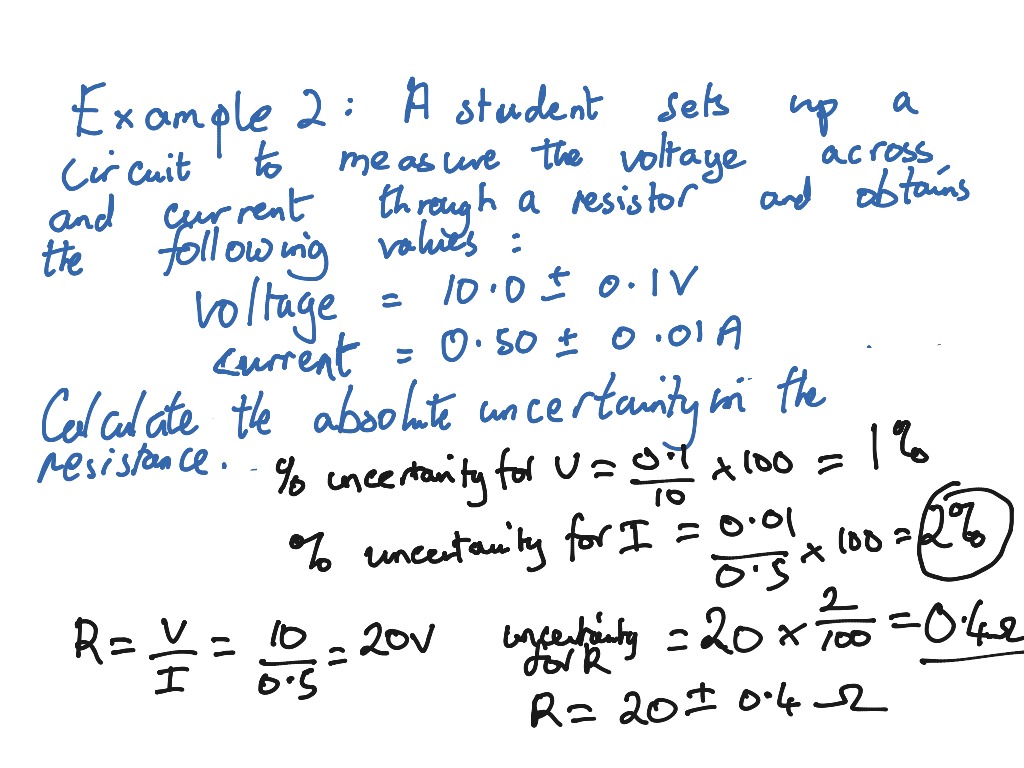 Example 2: A student sets up a
circuit to measure the voltage across
and current through a resistor and obtains
the following values:
voltage = 10.0 ± 0.1V
current = 0.50 ± 0.01A
Calculate the absolute uncertainty in the
resistance.
% uncertainty for V = 0.1/10 × 100 = 1%
% uncertainty for I = 0.01/0.5 × 100 = 2%
R = V/I = 10/0.5 = 20V
uncertainty for R = 20 × 2/100 = 0.4Ω
R = 20 ± 0.4 Ω